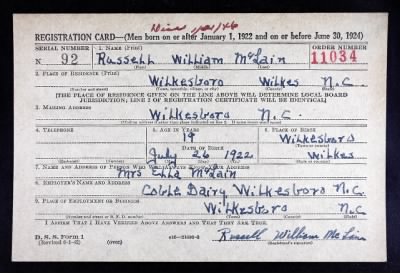 REGISTRATION CARD—(Men born on or after January 1, 1922 and on or before June 30, 1924)
SERIAL NUMBER 1. NAME (Print) ORDER NUMBER
N 92 Russell William McLain 11034
(First) (Middle) (Last)
2. PLACE OF RESIDENCE (Print)
Wilkesboro Wilkes N.C.
[THE PLACE OF RESIDENCE GIVEN ON THE LINE ABOVE WILL DETERMINE LOCAL BOARD
JURISDICTION; LINE 2 OF REGISTRATION CERTIFICATE WILL BE IDENTICAL]
3. MAILING ADDRESS
Wilkesboro N.C.
[Mailing address if other than place indicated on line 2. If same insert word same]
4. TELEPHONE 5. AGE IN YEARS 6. PLACE OF BIRTH
19 Wilkesboro
DATE OF BIRTH
July 26 1922 Wilkes
7. NAME AND ADDRESS OF PERSON WHO WILL ALWAYS KNOW YOUR ADDRESS
Mrs Ella McLain
8. EMPLOYER'S NAME AND ADDRESS
Coble Dairy Wilkesboro N.C.
9. PLACE OF EMPLOYMENT OR BUSINESS
Wilkesboro N.C.
I AFFIRM THAT I HAVE VERIFIED ABOVE ANSWERS AND THAT THEY ARE TRUE.
D. S. S. Form 1
(over) Russell William McLain
(Registrant's signature)